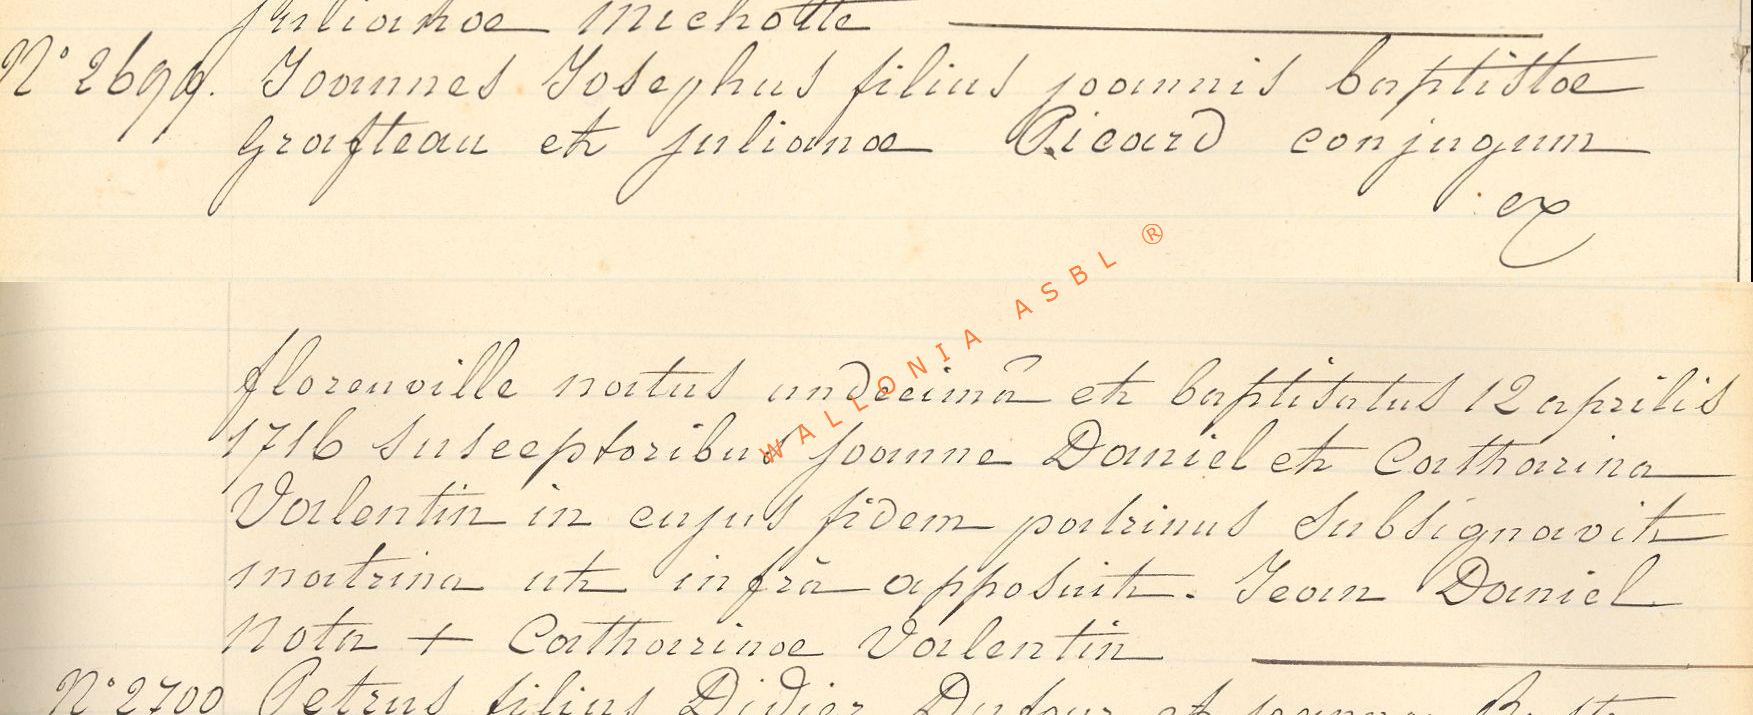 julianae Michotte
N° 2699. Joannes Josephus filius joannis baptistae
Grafteau et julianae Picard conjugum
ex
florenville natus undecimâ et baptisatus 12 aprilis
1716 susceptoribus joanne Daniel et Catharina
Valentin in cujus fidem patrinus subsignavit
matrina ut infrà apposuit. Jean Daniel
Nota + Catharinae Valentin
N° 2700 Petrus filius Didier Dufour et
WALLONIA ASBL ®